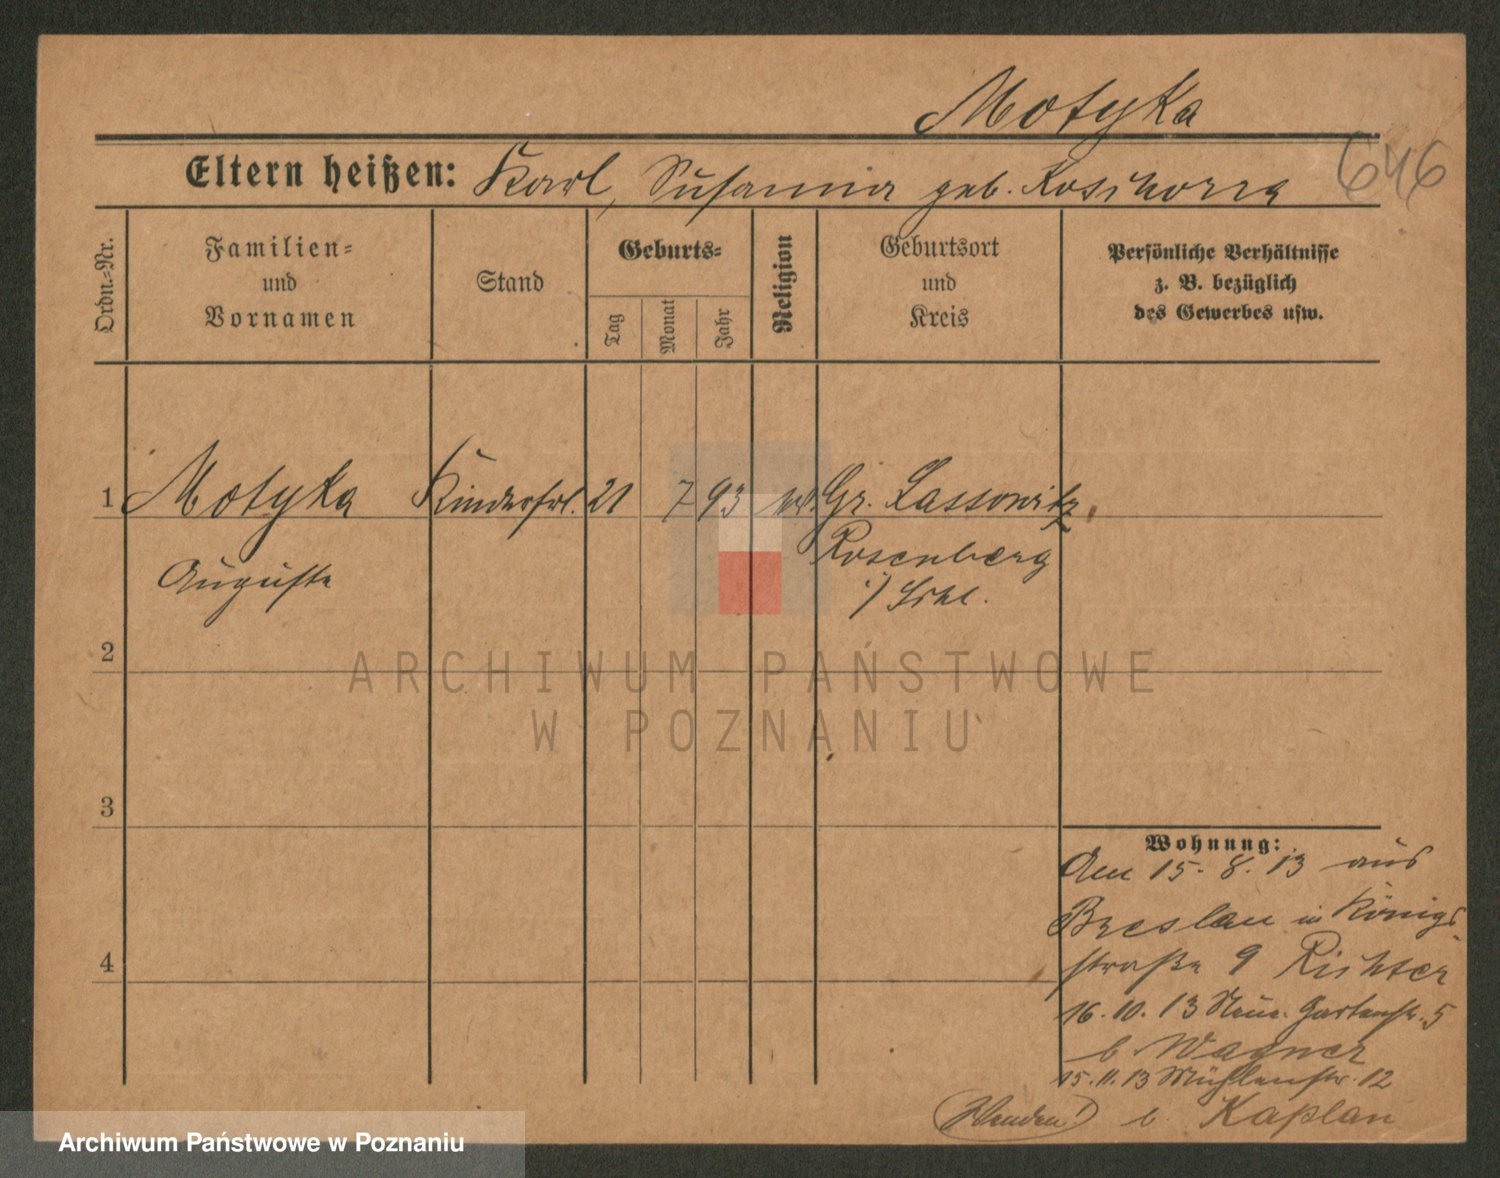 Motyka
646
Eltern heißen: Karl, Susanna geb. Koschorra
Ordn.=Nr.
Familien=
und
Vornamen
Stand
Geburts=
Tag
Monat
Jahr
Religion
Geburtsort
und
Kreis
Persönliche Verhältnisse
z. B. bezüglich
des Gewerbes usw.
1 Motyka Kinderfrl. 21 7 93 Gr. Lassowitz
Rosenberg
Auguste
i/ Schl.
2
ARCHIWUM PAŃSTWOWE
W POZNANIU
3
Wohnung:
Am 15. 8. 13 aus
Breslau in Königs-
straße 9 Richter
4
16. 10. 13 Neue Gartenstr. 5
b. Wagner
15. 11. 13 Mühlenstr. 12
b. Kaplan
Wenden!
Archiwum Państwowe w Poznaniu